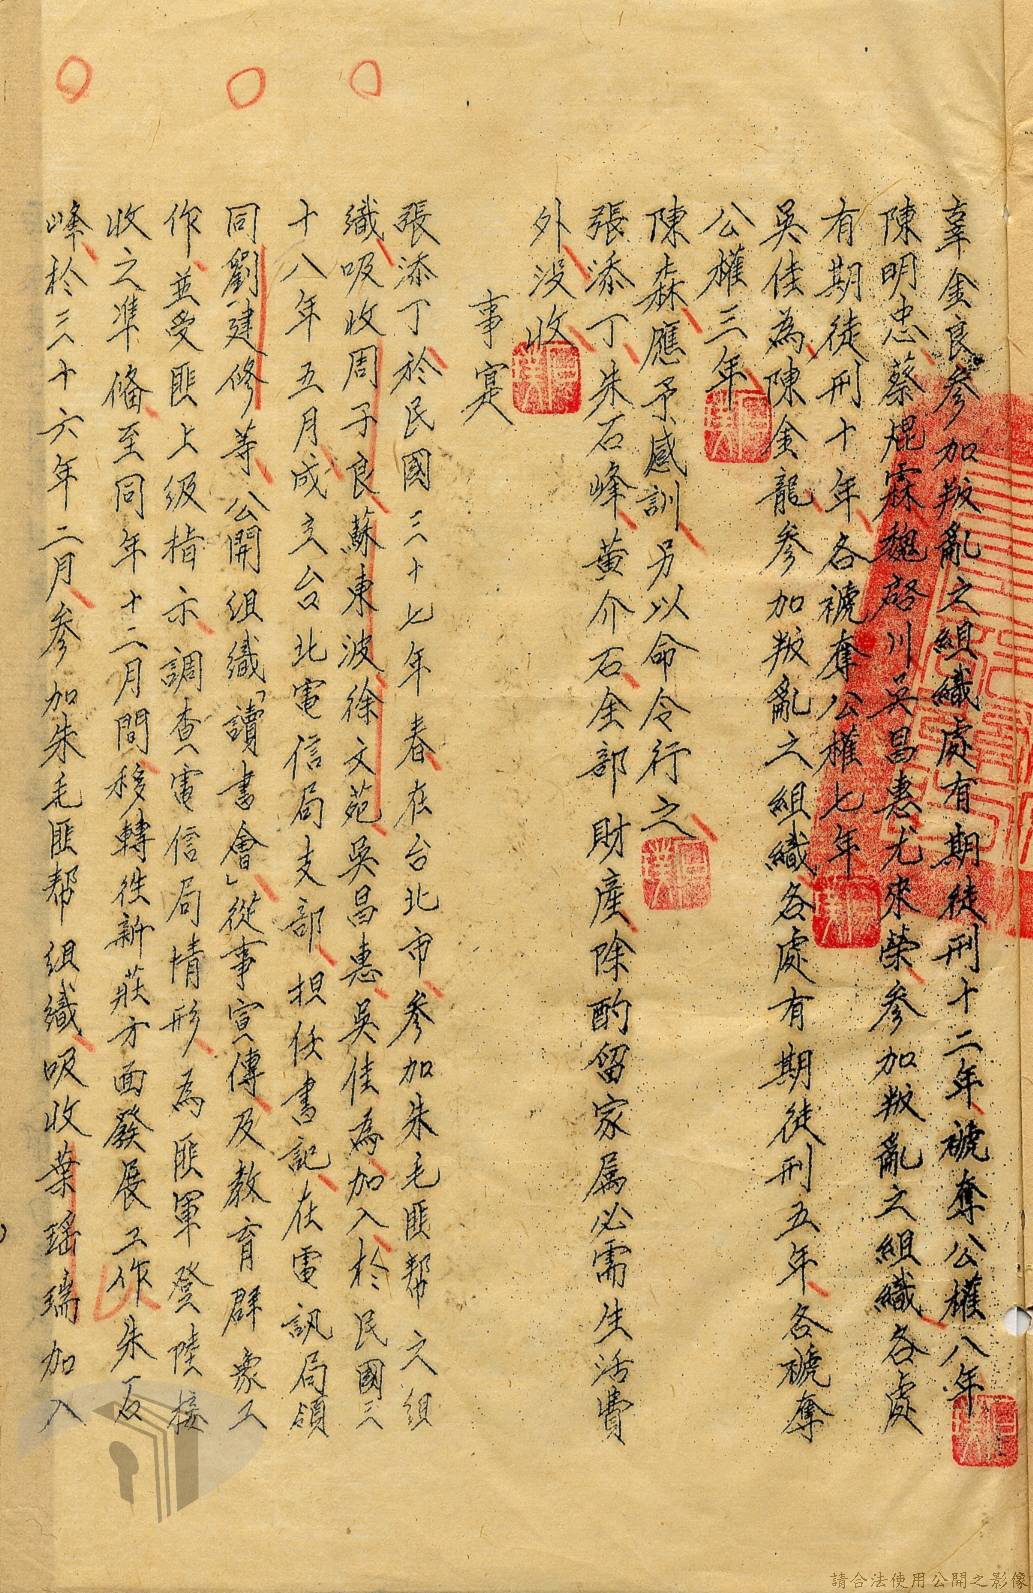 辜金良參加叛亂之組織處有期徒刑十二年褫奪公權八年
陳明忠蔡焜霖魏啓川吳昌惠尤來榮參加叛亂之組織各處
有期徒刑十年各褫奪公權七年
吳佳為陳金龍參加叛亂之組織各處有期徒刑五年各褫奪
公權三年
陳森應予感訓另以命令行之
張添丁朱石峰黃介石全部財產除酌留家屬必需生活費
外沒收
事實
張添丁於民國三十七年春在台北市參加朱毛匪幫之組
織吸收周子良蘇東波徐文苑吳昌惠吳佳為加入於民國三
十八年五月成立台北電信局支部担任書記在電訊局領
同劉建修等公開組織「讀書會」從事宣傳及教育群衆工
作並受匪上級指示調查電信局情形為匪軍登陸接
收之準備至同年十二月間移轉往新莊方面發展工作朱石
峰於三十六年二月參加朱毛匪幫組織吸收葉瑤瑞加入
請合法使用公開之影像